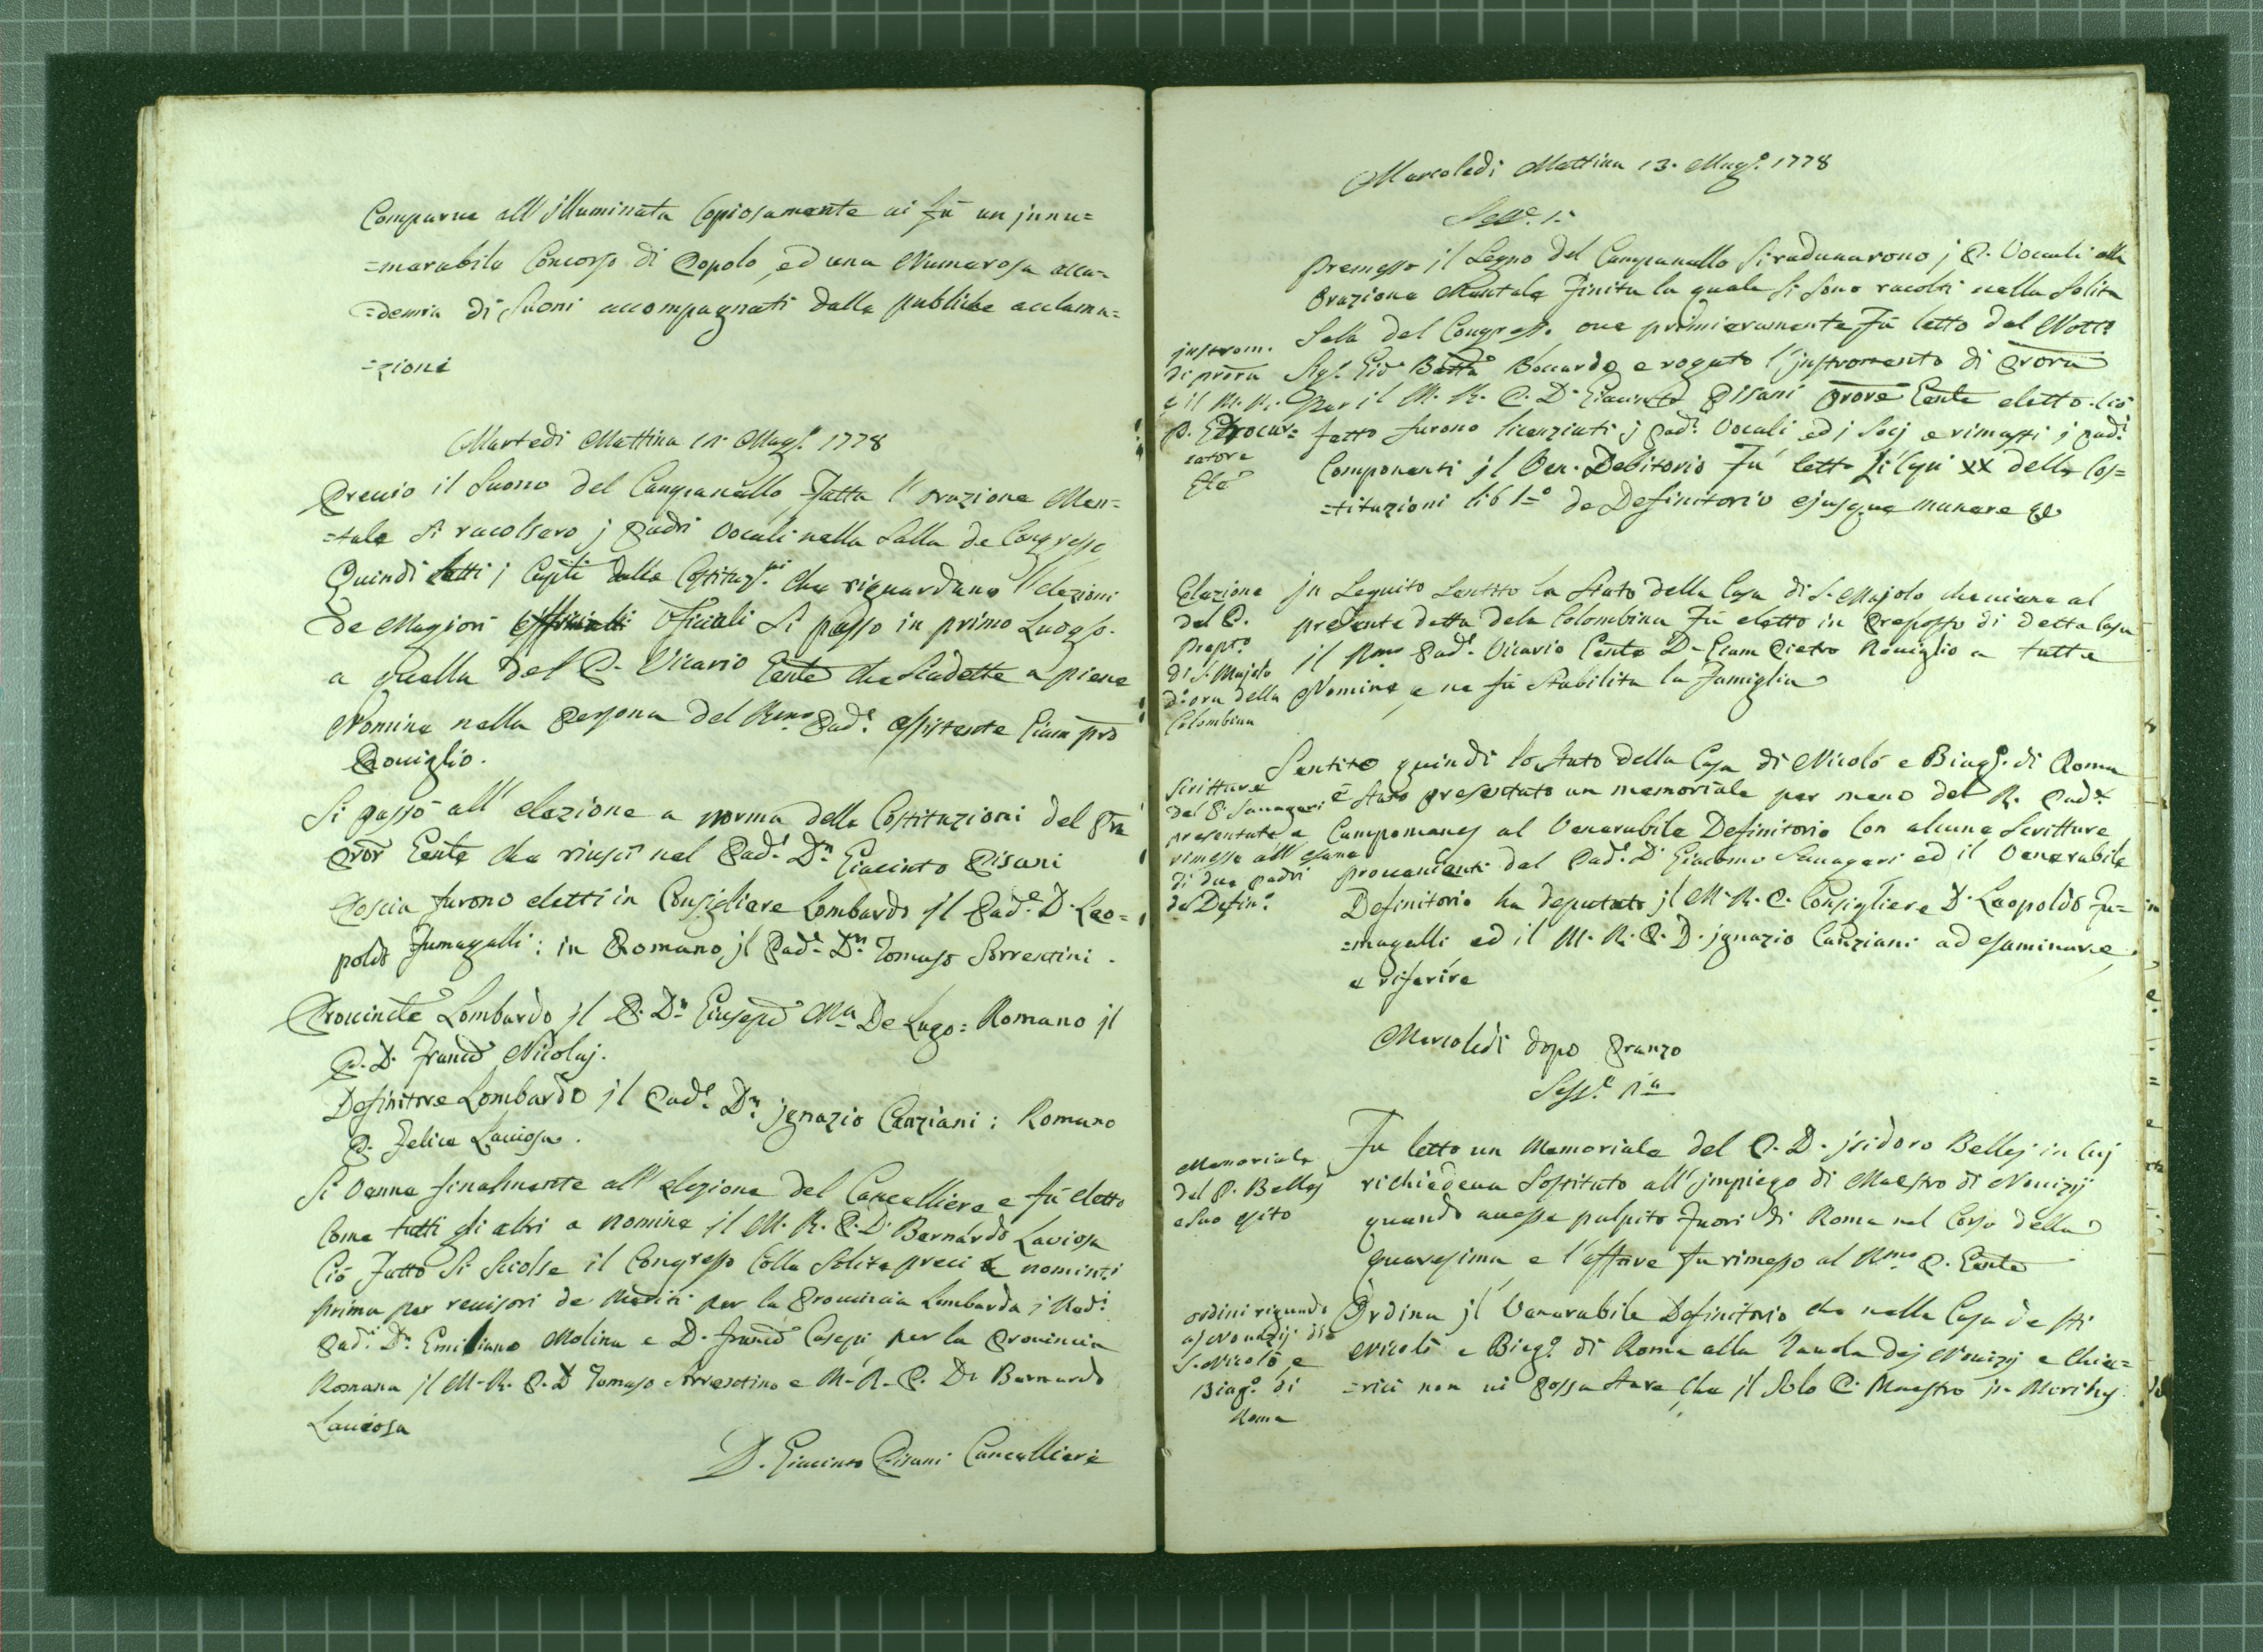 Comparve all'illuminata Copiosamente vi fù un jnnu=
=merabile Concorso di Popolo, ed una Numerosa acca=
=demia di Suoni accompagnati dalle publiche acclama=
=zioni
Martedi Mattina 12. Magg.º 1778
Previo il Suono del Campanello fatta l'orazione Men=
=tale si racolsero j Padri Vocali nella Salla de Congressi
Quindi letti j Capti delle Costituz.ni che riguardano l'elezioni
De Magiori Oficiali Si passo in primo Luogo.
a quella del P. Vicario Gente che Cadette a piene
Nomine nella Persona del Rmo Pad.e Assistente Giam pro
Roviglio.
Si passò all'elezione a norma delle Costituzioni del Pre
Pror Gente che riuscì nel Pad.e D.n Giacinto Pisani
Poscia furono eletti in Consigliere Lombardo jl Pad.e D. Leo=
poldo Fumagalli: in Romano jl Pad.e D.n Tomaso Sorrentini.
Provincle Lombardo jl P. D.n Giusepe Ma De Lugo = Romano jl
P. D. Franco Nicolaj.
Definitore Lombardo jl Pad.e D.n jgnazio Canziani: Romano
P. Felice Laviosa.
Si Venne finalmente all'elezione del Cancelliere e fù eletto
Come tutti gli altri a nomine jl M. R. P. D. Bernardo Laviosa
Ciò fatto Si Sciolse il Congresso Colle Solite preci e nominti
prima per revisori de Meriti per la Provincia Lombarda j Red.i
Pad.i D.n Emiliano Molina e D. Franco Casepi per la Provincia
Romana jl M. R. P. D Tomaso Sorrentino e M. R. P. D.n Bernardo
Laviosa
D. Giacinto Pisani Cancelliere
Mercoledi Mattina 13. Magg.º 1778
Sess.e 1.a
Premesso il Segno del Campanello Si radunarono j P. Vocali alla
Orazione Mentale finita la quale Si Sono racolti nella Solita
Sala del Congresso. ove primieramente fù letto dal Nott.o
Sig.r Gio Batta Boccardo e rogato l'jnstromento di Prora
Per il M. R. P. D. Giacinto Pisani Prore Gente eletto. Ciò
fatto furono licenziati j Pad.i Vocali ed j Socj e rimasti j Pad.i
Componenti jl Ven. Definitorio Fu letto il Cap XX delle Cos=
=tituzioni lib 1.o de Definitorio ejusque munere &c
jnstrom.
di prora
e il M. R.
P. Procur=
ratore
Gle
Elezione
del P.
Prepto
di S. Majolo
d.o ora della
Colombina
jn Seguito Sentito lo Stato della Casa di S. Majolo che viene al
presente detta dela Colombina Fù eletto in Preposto di detta Casa
il Rmo Pad.e Vicario Gente D. Giam Pietro Roviglio a tutte
Nomine, e ne fù Stabilita la Famiglia
Scritture
del P. Sanageri
presentate e
rimesse all'esame
di due padri
de Defin.o
Sentito quindi lo Stato della Casa di Nicolò e Biag.o di Roma
è Stato presentato un memoriale per meno del R. Pad.e
Campomanes al Venerabile Definitorio Con alcune Scritture
provenienti dal Pad.e D. Giacomo Sanageri ed il Venerabile
Definitorio ha deputato jl M. R. P. Consigliere D. Leopoldo Fu=
=magalli ed il M. R. P. D. jgnazio Canziani ad esaminare,
e riferire
Mercoledì dopo Pranzo
Sess.e 2.a
Memoriale
del P. Bellej
e suo esito
Fu letto un Memoriale del P. D. jsidoro Bellej in Cuj
richiedeva Sostituto all'jmpiego di Maestro di Novizij
quando avesse pulpito fuori di Roma nel Corso della
quaresima e l'affare fu rimesso al Rmo P. Gente
ordini riguardo
aj Novizij di
S. Nicolò, e
Biag.o di
Roma
Ordina jl Venerabile Definitorio che nella Casa de Sti
Nicolò e Biag.o di Roma alla Tavola dej Novizij e Chie=
=rici non vi possa Stare che jl Solo P. Maestro jn